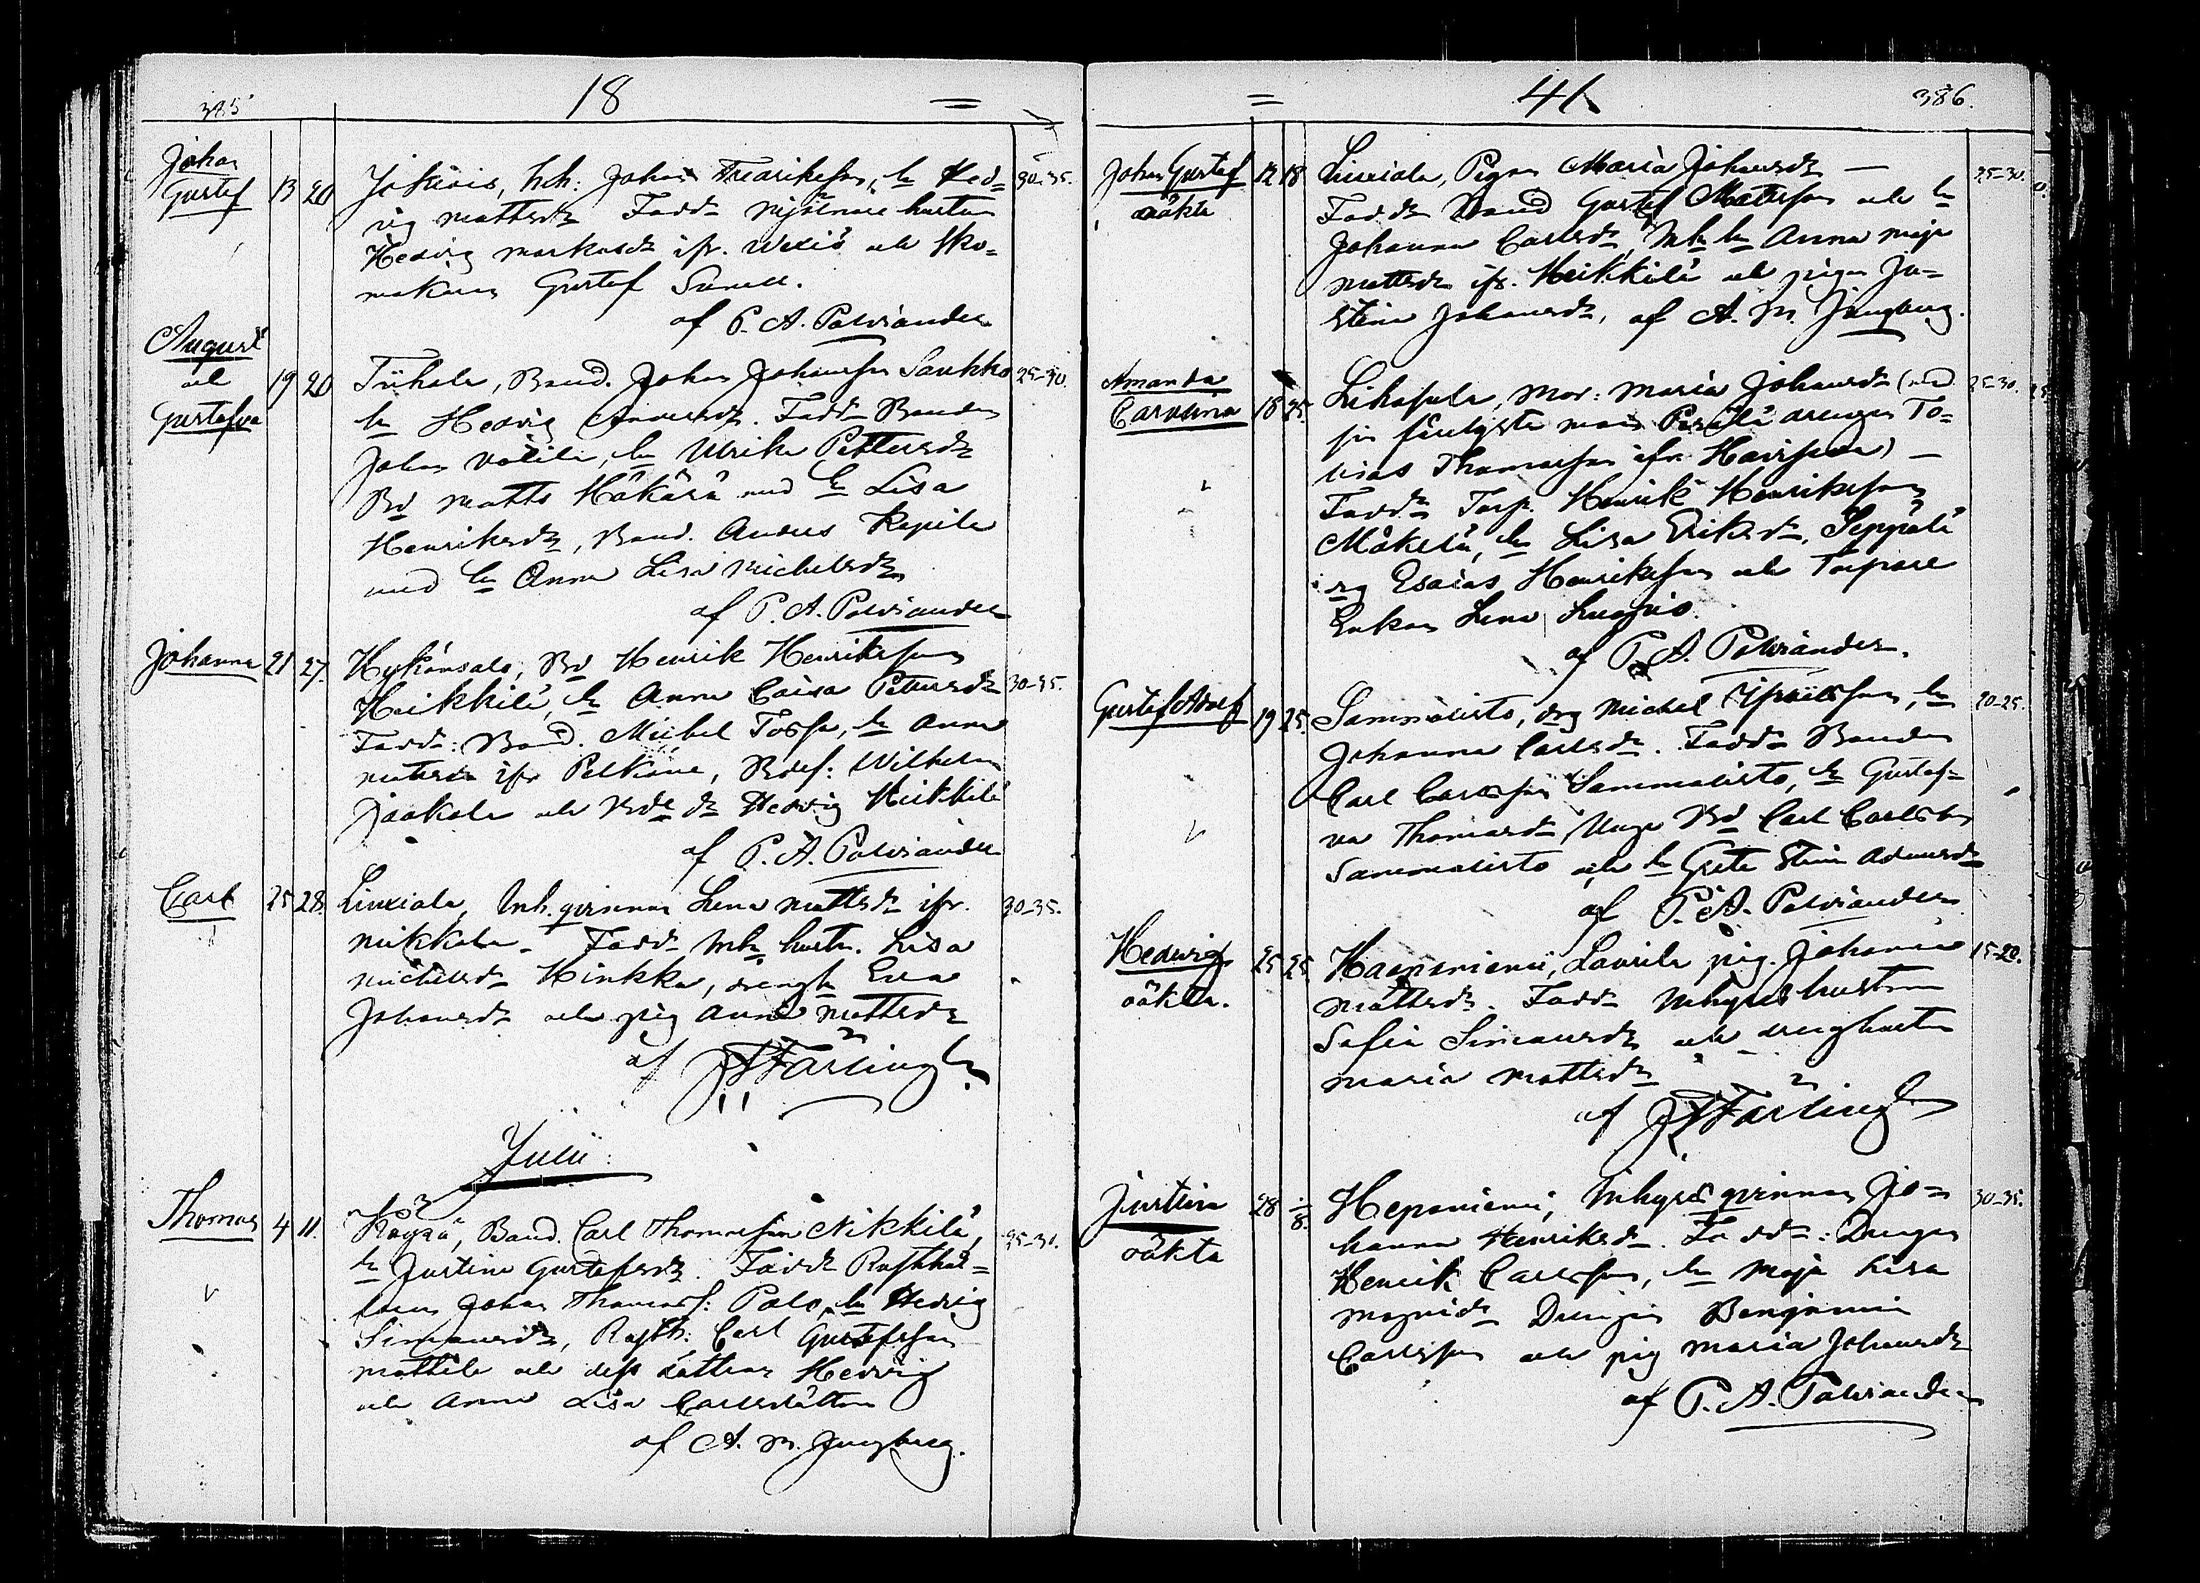 385
18
=
Johan
Gustef
13
20
Jokiois, Inh: Johan Fredriksson, h Hed=
vig Mattsdr Fadd: hustru
Hedvig Markusdr ifr. och Sko=
makaren Gustef Sunell.
af P. A. Palviander
30-35.
August
och
Gustafva
19
20
Tiihala, Bond. Johan Johansson Saukko
h Hedvig Andersdr. Fadd: Bonden
Johan h Ulrika Pettersdr
Bd Matts Häkärä med h Lisa
Henriksdr, Bond. Anders Repila
med h Anna Lisa Michelsdr
af P. A. Palviander
25-30.
Johanna
21
27.
Hykänsalo, Bd Henrik Henriksson
Heikkilä, h Anna Caisa Pettersdr
Fadd: Bond. Michel h Anna
Mattsdr ifr Pelkäne, Wilhelm
Jaakola och dr Hedvig Heikkilä
af P. A. Palviander
30-35.
Carl
25
28.
Liuxiala, Inh.qvinnan Lena Mattsdr ifr.
Mikkola. Fadd Inh hustr. Lisa
Michelsdr Hinkka, drengh Eva
Johansdr och pig Anna Mattsdr
af Färling
30-35.
Julii:
Thomas
4
11.
Bond. Carl Thomasson Nikkilä,
h Justina Gustafsdr. Fadd Rusthål=
laren Johan Thomass: Palo, h Hedvig
Simonsdr, Rusth: Carl Gustafsson
Mattila och dess döttrar Hedvig
och Anna Lisa Carlsdöttrar
af A. M. Jungberg.
25-30.
=
41
386.
Johan Gustef
oäkta
12
18
Liuxiala, Pigan Maria Johansdr —
Fadd: Bond Gustaf Matsson och h
Johanna Carlsdr, Inh h Anna Maja
Mattsdr ifr. Heikkilä och pigan Ju=
stina Johansdr, af A. M. Jungberg.
25-30.
Amanda
Carolina
18
25.
Mor: Maria Johansdr (med
sin förlofvade drengen To=
bias Thomasson ifr ) —
Fadd: Torp. Henrik Henriksson
Mäkelä, h Lisa Eriksdr, Seppälä
Esaias Henriksson och Torpare
Enkan Lena
af P. A. Palviander.
25-30.
Gustef Adolf
19
25.
Sammalisto, drg Michel h
Johanna Carlsdr. Fadd: Bonden
Carl Carlsson Sammalisto, h Gustaf=
va Thomasdr Unge Bd Carl Carlsson
Sammalisto och h Greta Stina Adamsdr
af P. A. Palviander
20-25.
Hedvig
oäkta.
25
25
Haapaniemi, Laurila pig. Johanna
Mattsdr. Fadd: Inhyses hustrun
Sofia Simonsdr och drenghustrun
Maria Mattsdr
af Färling
15-20.
Justina
oäkta
28
1/8.
Hepaniemi, Inhyses qvinnan Jo=
hanna Henriksdr. Fadd: Drengen
Henrik Carlsson, h Maja Lisa
Drengen Benjamin
Carlsson och pig Maria Johansdr
af P. A. Palviander
30-35.